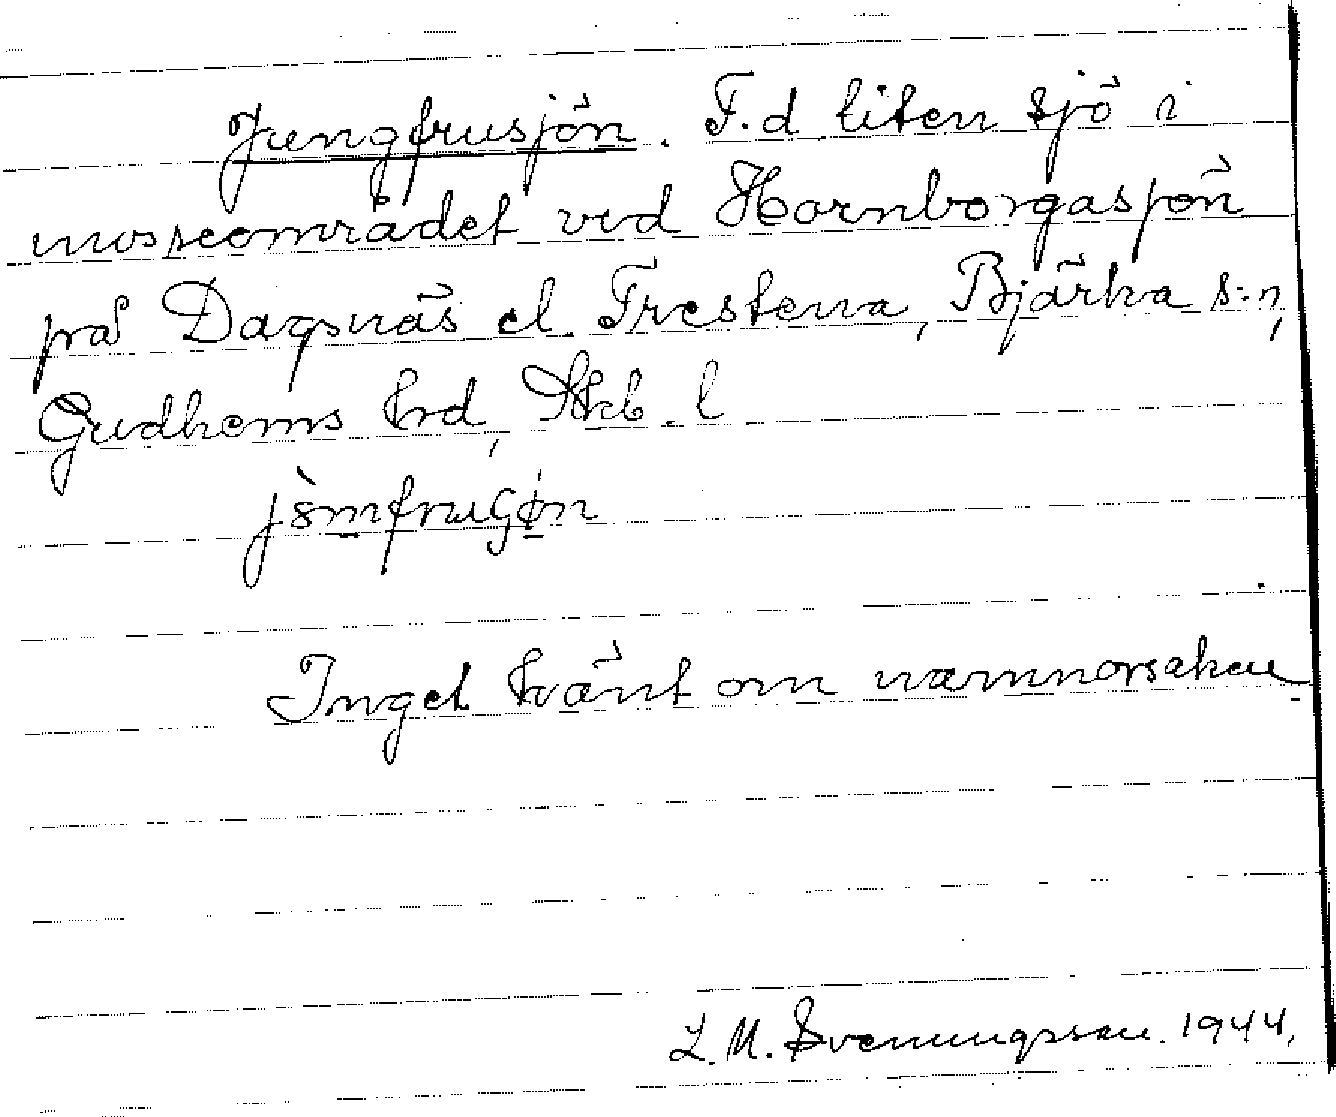 Jungfrusjön. F.d liten sjö i
mosseområdet vid Hornborgasjön
på Dagsnäs el. Fresterna, Bjärka s:n,
Gudhems hrd, Skb. l
jsmfruçøn
Inget känt om namnorsaken
L. M. Svenungsson. 1944,